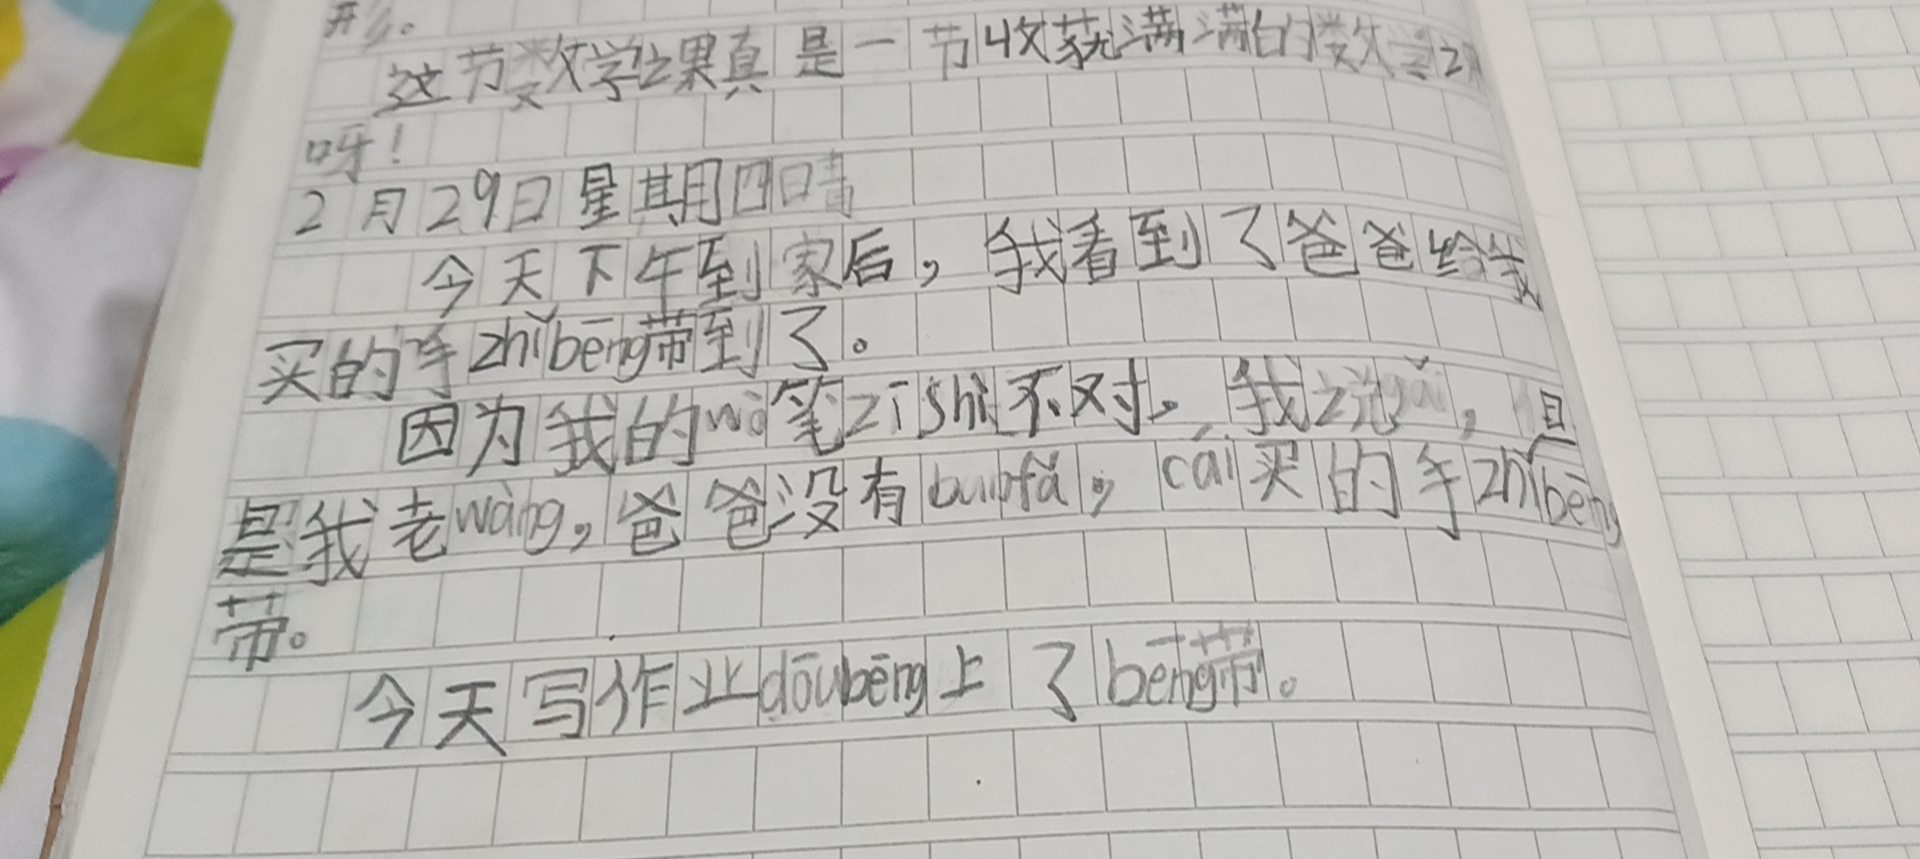 这节数学课果真是一节收获满满的数学课
呀！
2月29日星期四晴
今天下午到家后，我看到了爸爸给我
买的手zhǐbēng带到了。
因为我的wò笔zīshì不对。我说gǎi，但
是我老wàng，爸爸没有bànfǎ，cái买的手zhǐbēng
带。
今天写作业dōubēng上了bēng带。